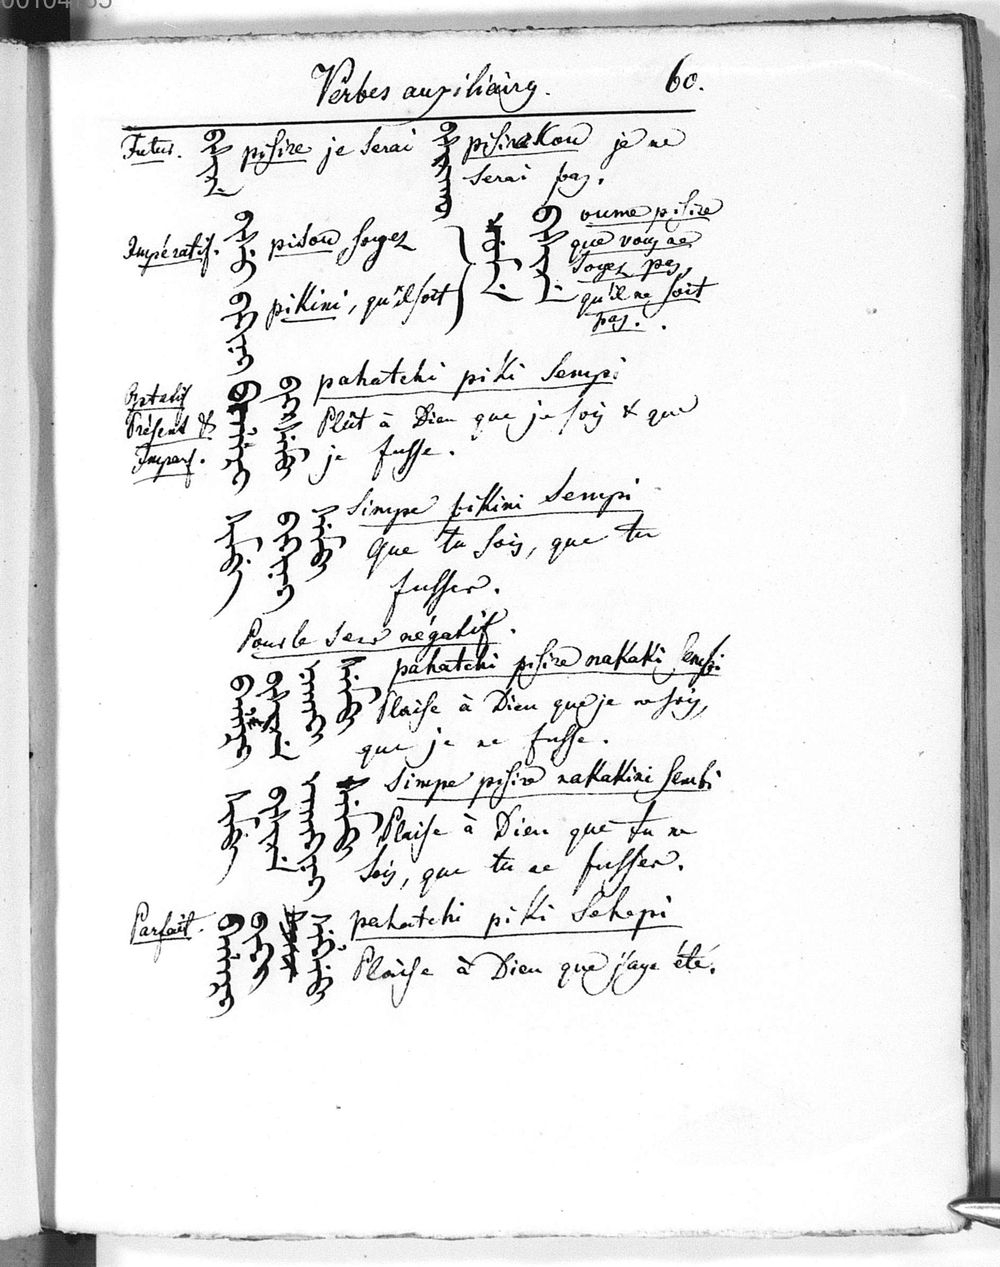 Verbes auxiliaires. 60.
Futur. ᠪᡳᠰᡳᡵᡝ pisire je serai ᠪᡳᠰᡳᡵᠠᡴᡡ pisirakou je ne
serai pas.
Impératif. ᠪᡳᠰᡠ pisou soyez ᡠᠮᡝ ᠪᡳᠰᡳᡵᡝ oume pisire
que vous ne
soyez pas,
ᠪᡳᡴᡳᠨᡳ pikini, qu'il soit qu'il ne soit
pas.
Optatif pahatchi piki sempi
Présent & Plût à Dieu que je sois & que
Imparf. je fusse.
simpe pikini sempi
que tu sois, que tu
fusses.
Pour le sens négatif.
pahatchi pisire nakaki sempi
Plaise à Dieu que je ne sois,
que je ne fusse.
simpe pisire nakakini sembi
Plaise à Dieu que tu ne
sois, que tu ne fusses.
Parfait. pahatchi piki sehepi
Plaise à Dieu que j'aye été.